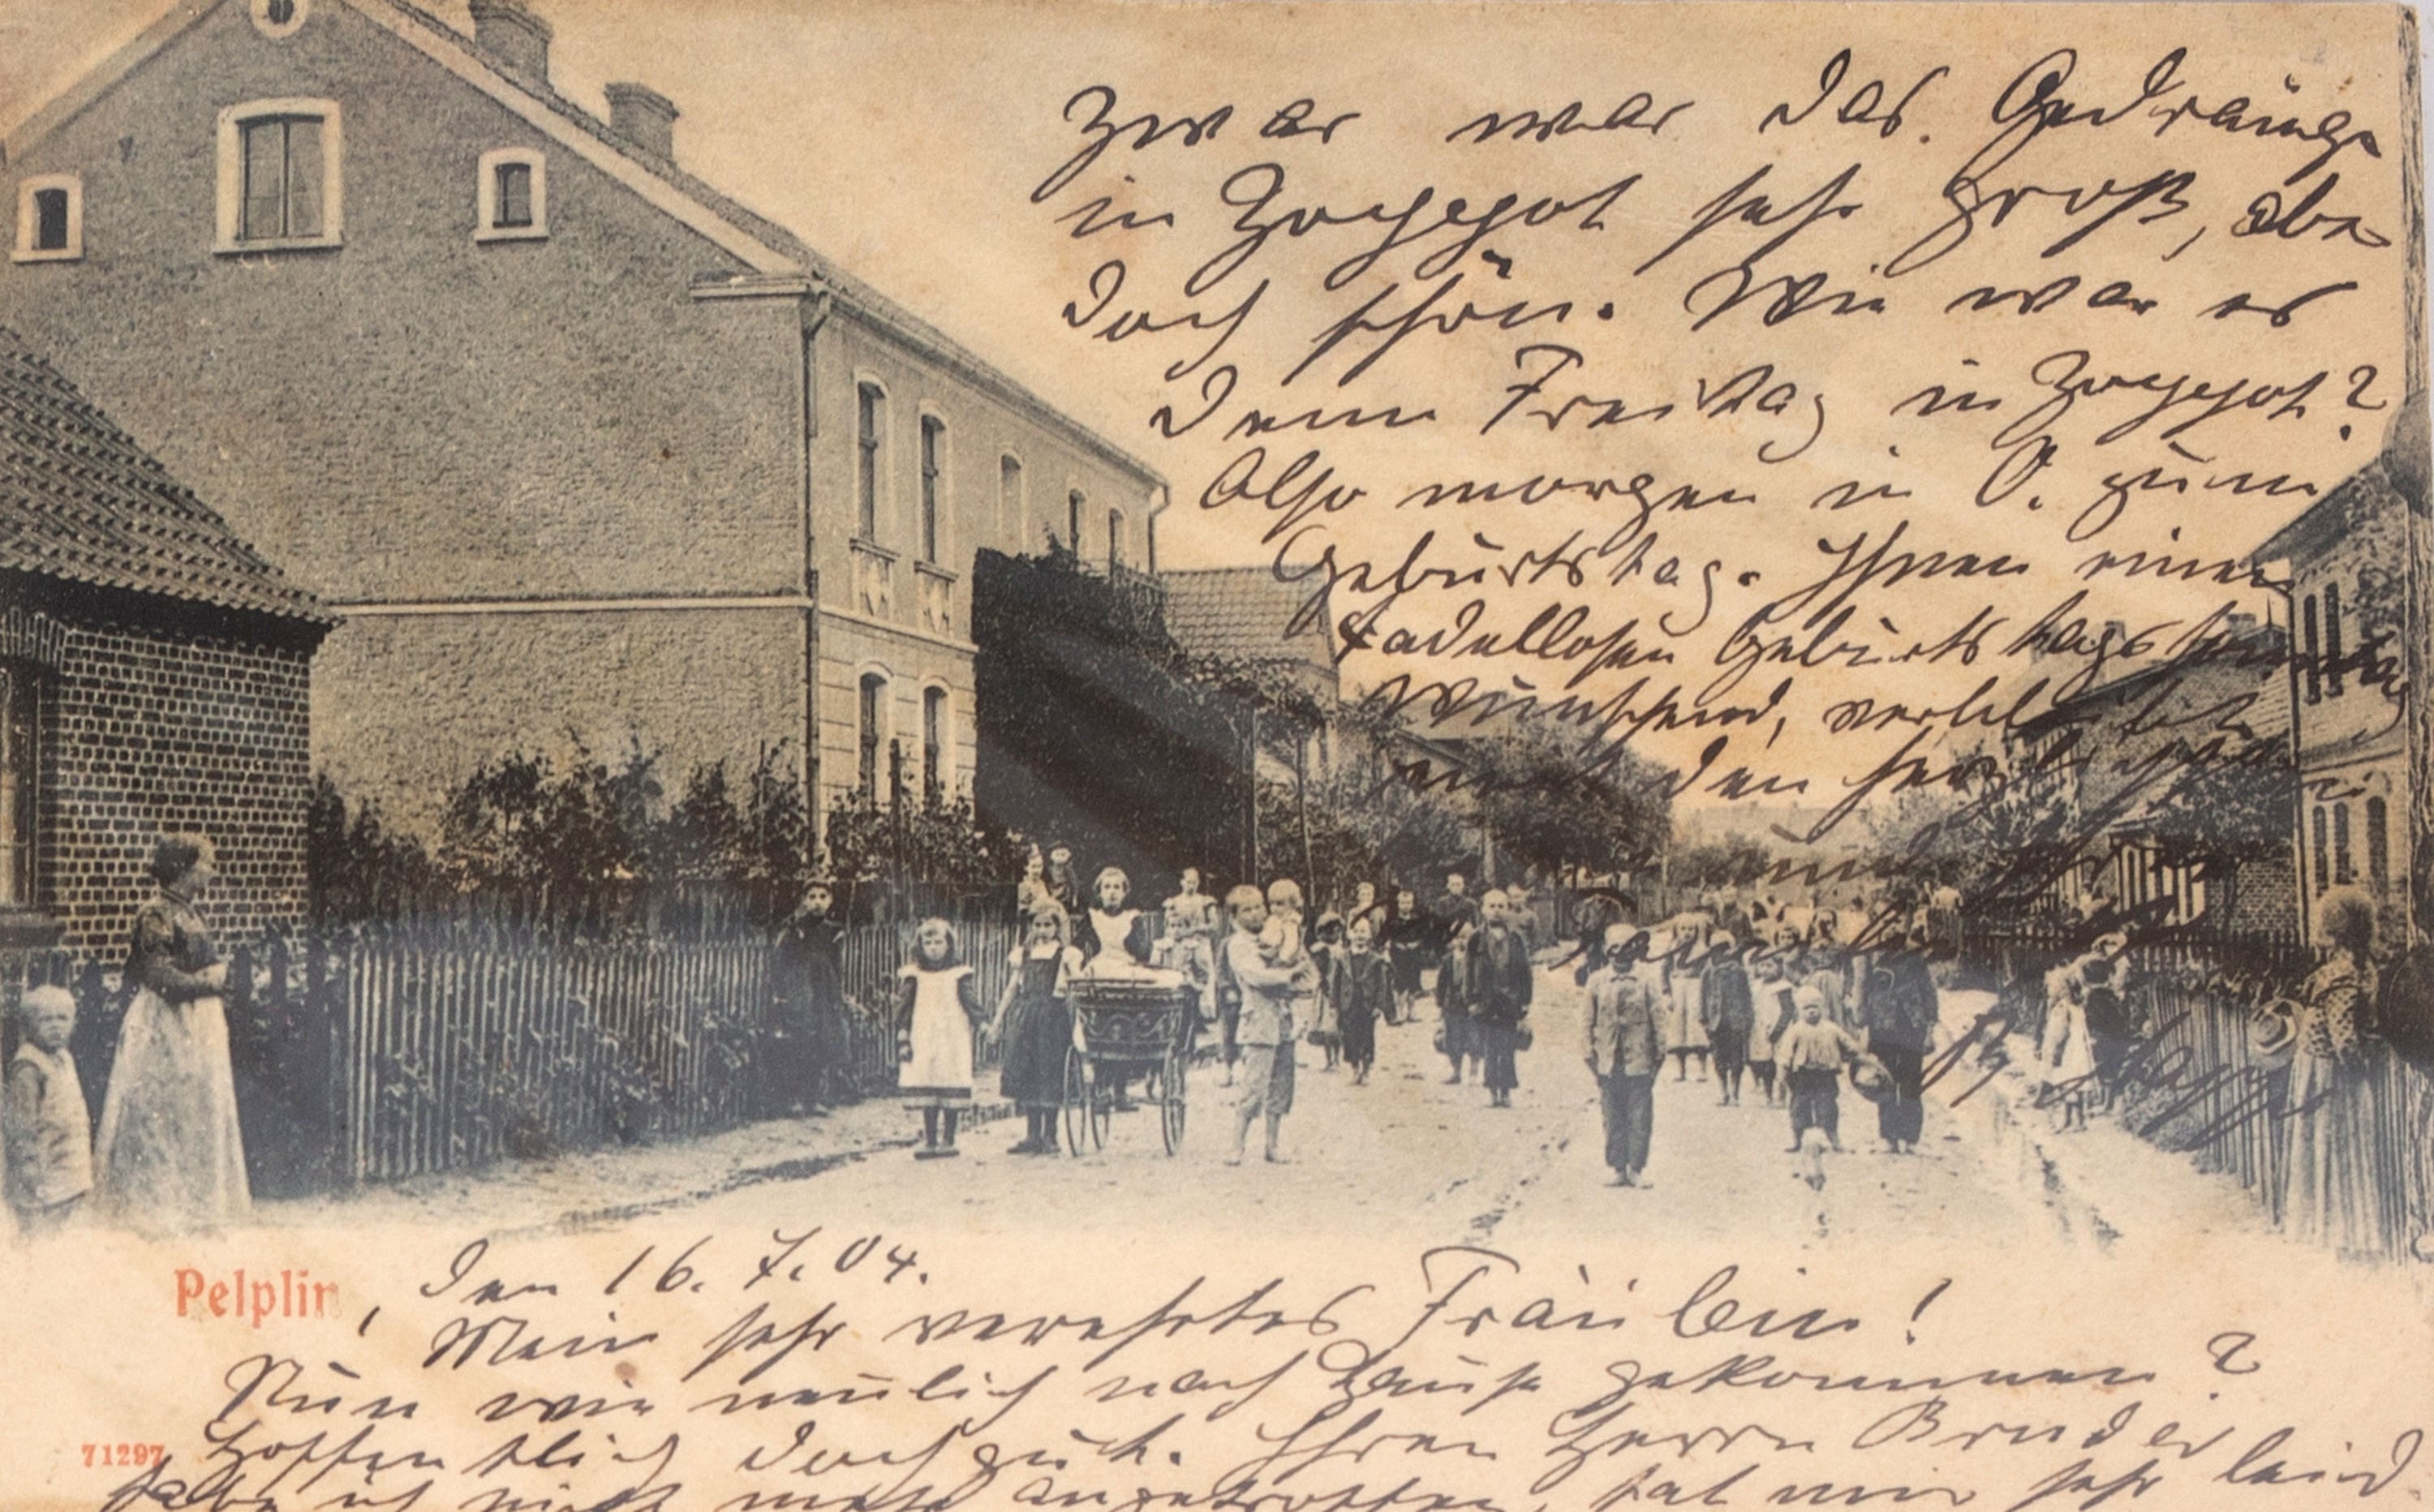 Pelplin, den 16. 7. 04.
Mein sehr verehrtes Fräulein!
Nun wie neulich nach Hause gekommen?
Hoffentlich doch gut. Ihren Herrn Bruder
habe ich nicht mehr angetroffen, tat mir sehr leid.
71297
Zwar war das Gedränge
in Zoppot sehr groß, aber
doch schön. Wie war es
denn Freitag in Zoppot?
Also morgen in O. zum
Geburtstag. Ihnen einen
tadellosen Geburtstags
wünschend, verbleibt
mit den herzlichsten
und